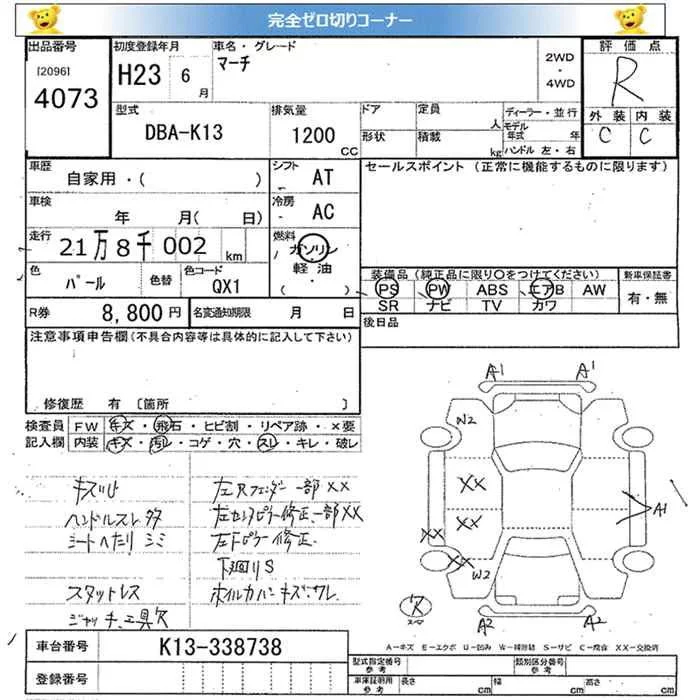 完全ゼロ切りコーナー
出品番号
[2096]
4073
初度登録年月
H23 6 月
車名・グレード
マーチ
2WD
・
4WD
評価点
R
外装 内装
C C
型式
DBA-K13
排気量
1200 CC
ドア
形状
定員
積載
人
kg
ディーラー・並行
モデル年式 年
ハンドル 左・右
車歴
自家用・( )
シフト
AT
セールスポイント (正常に機能するものに限ります)
車検
年 月( 日)
冷房
AC
走行
21万8千002 km
燃料
ガソリン
軽油
・
( )
色
パール
色替
色コード
QX1
装備品 (純正品に限り○をつけてください)
PS PW ABS エアB AW
SR ナビ TV カワ
新車保証書
有・無
R券
8,800円
名変通知期限 月 日
後日品
注意事項申告欄 (不具合内容等は具体的に記入して下さい)
修復歴 有 〔箇所 〕
検査員
記入欄
FW キズ・飛石・ヒビ割・リペア跡・×要
内装 キズ・汚レ・コゲ・穴・スレ・キレ・破レ
ハンドルスレ 多
シートヘたり シミ
スタットレス
ジャッキ、工具欠
左Rフェンダー一部XX
左センタピラー修正、一部XX
左Fピラー修正
下廻りS
ホイルカバーキズ・ワレ
A1 A1
W2
XX
XX
XX
XX
W2
A1
A2 A2
ス
A-キズ E-エクボ U-凹み W-補修跡 S-サビ C-腐食 XX-交換済
車台番号
K13-338738
登録番号
型式指定番号
参考
類別区分番号
参考
車庫証明用
参考
長さ cm
幅 cm
高さ cm